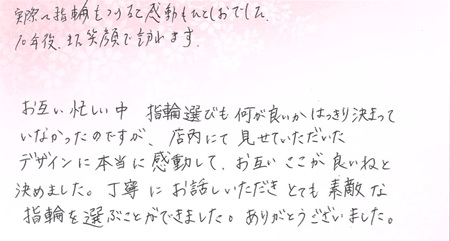 実際に指輪をつけると感動もひとしおでした。
10年後、また笑顔で訪れます。
お互い忙しい中 指輪選びも何が良いかはっきり決まって
いなかったのですが、店内にて見せていただいた
デザインに本当に感動して、お互いここが良いねと
決めました。丁寧にお話しいただきとても素敵な
指輪を選ぶことができました。ありがとうございました。